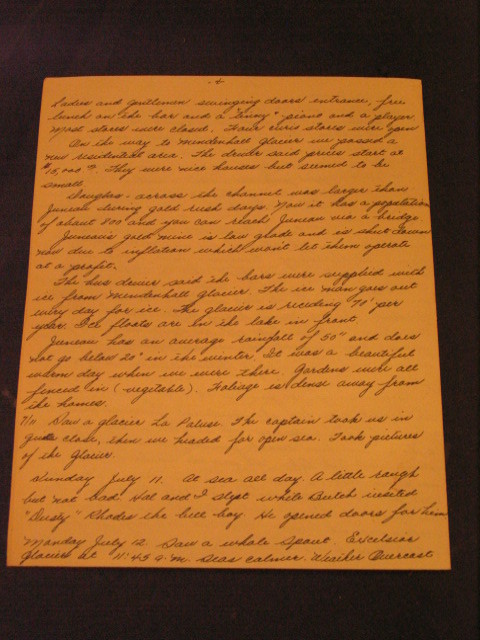 4
Ladies and gentlemen swinging doors entrance, free
lunch on the bar and a "tinny" piano and a player
Most stores were closed. Four curio stores were open
On the way to Mendenhall Glacier we passed a
new residential area. The driver said prices start at
$15,000 ⁰⁰. They were nice houses but seemed to be
small.
Douglas - across the channel was larger than
Juneau during gold rush days. Now it has a population
of about 800 and you can reach Juneau via a bridge
Juneau's gold mine is low grade and is shut down
now due to inflation which won't let them operate
at a profit.
The bus driver said the bars were supplied with
ice from Mendenhall glacier. The ice man goes out
every day for ice. The glacier is receding 70' per
year. Ice floats are in the lake in front.
Juneau has an average rainfall of 50" and does
not go below 20° in the winter. It was a beautiful
warm day when we were there. Gardens were all
fenced in (-vegetable). Foliage is dense away from
the homes.
7/11 Saw a glacier La Paluse The captain took us in
close, then we headed for open sea. Took pictures
of the Glacier.
Sunday July 11. At sea all day. A little rough
but not bad. Hal and I slept while Butch visited
"Dusty" Rhodes the bell boy. He opened doors for him
Monday July 12 Saw a whale spout. Excelsior
Glacier at 11:45 A.M. Seas calmer. Weather Overcast